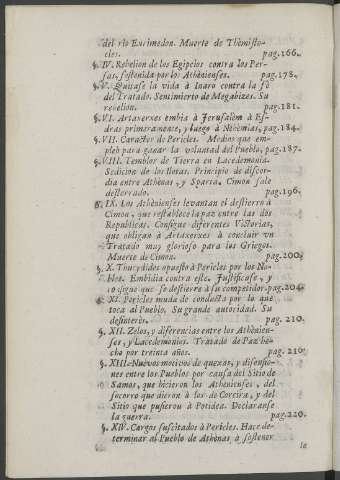 del rio Eurimedon. Muerte de Themisto-
cles. pag.166.
§. IV. Rebelion de los Egipcios contra los Per-
sas, sostenida por los Athènienses. pag.178.
§. V. Quitase la vida à Inaro contra la fè
del Tratado. Sentimiento de Megabizes. Su
rebelion. pag.181.
§. VI. Artaxerxes embia à Jerusalèm à Es-
dras primeramente, y luego à Nehèmias, pag.184.
§. VII. Caracter de Pericles. Medios que em-
pleò para ganar la voluntad del Pueblo, pag.187.
§. VIII. Temblor de Tierra en Lacedemonia.
Sedicion de los Ilotas. Principio de discor-
dia entre Athènas, y Sparta. Cimon sale
desterrado. pag.196.
§. IX. Los Athènienses levantan el destierro à
Cimon, que restablece la paz entre las dos
Republicas. Consigue diferentes Victorias,
que obligan à Artaxerxes à concluir un
Tratado muy glorioso para los Griegos.
Muerte de Cimon. pag.200.
§. X. Thucydides opuesto à Pericles por los No-
bles. Embidia contra este. Justificase, y
consigue que se destierre à su competidor. pag.204.
§. XI. Pericles muda de conducta por lo que
toca al Pueblo. Su grande autoridad. Su
desinterès. pag. 210.
§. XII. Zelos, y diferencias entre los Athènien-
ses, y Lacedemonios. Tratado de Paz he-
cho por treinta años. pag. 210.
§. XIII. Nuevos motivos de quexas, y disensio-
nes entre los Pueblos por causa del Sitio de
Samos, que hicieron los Athènienses, del
socorro que dieron à los de Corcira, y del
Sitio que pusieron à Potidea. Declarase
la guerra. pag.220.
§. XIV. Cargos suscitados à Pericles. Hace de-
terminar al Pueblo de Athènas à sostener
la